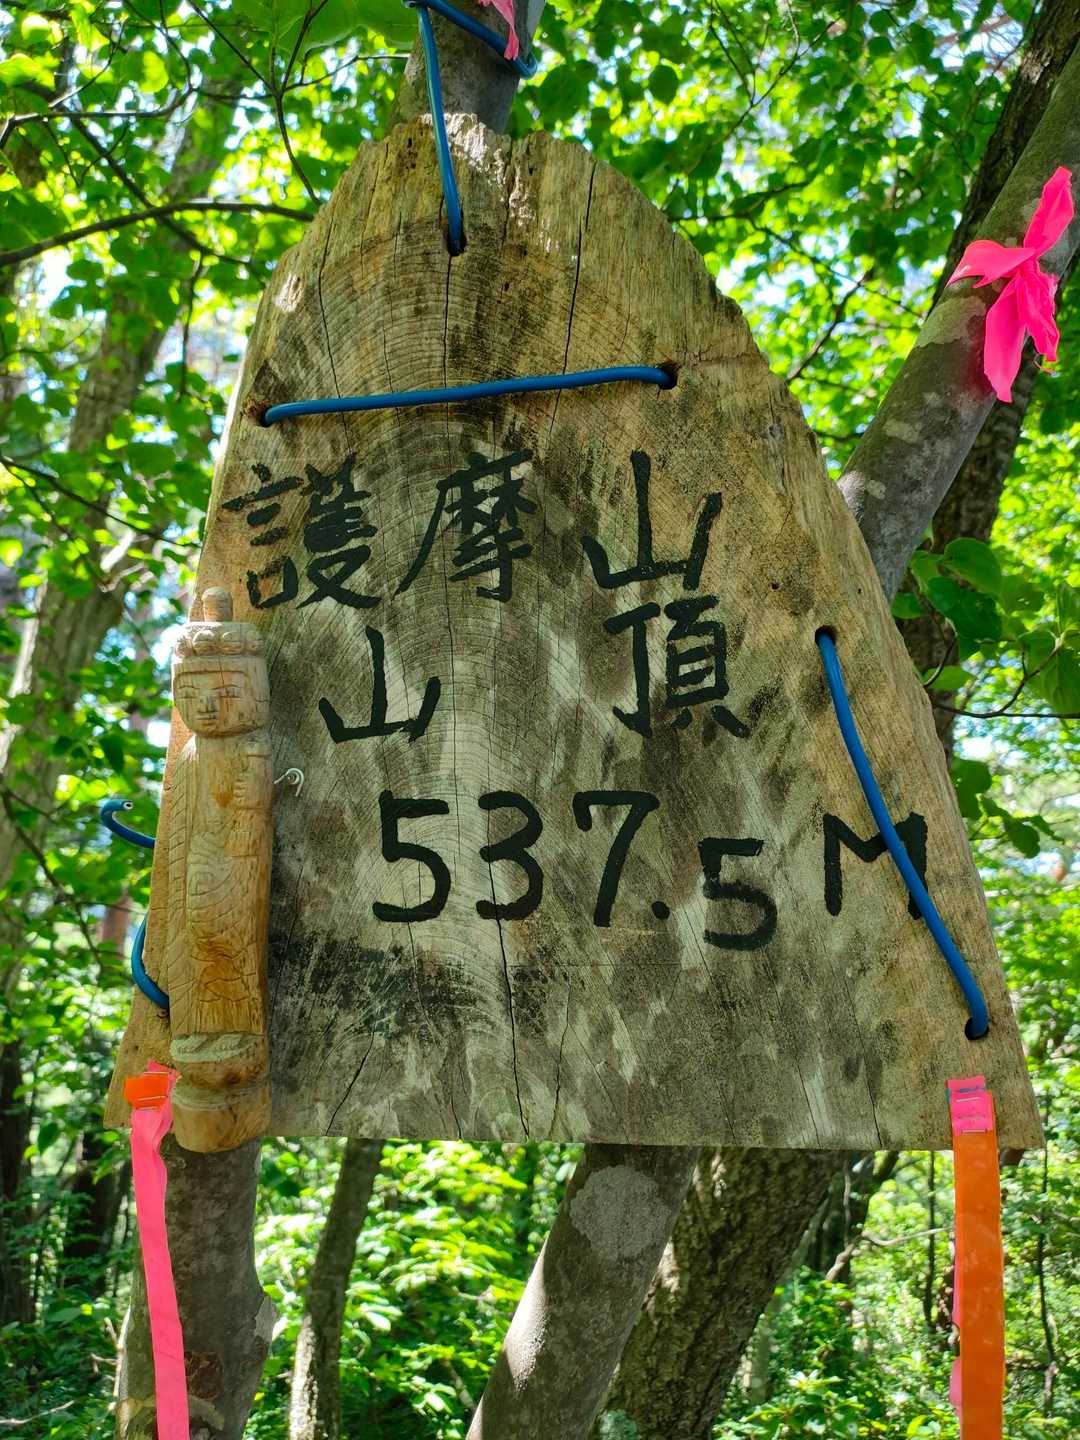 護摩山
山頂
537.5M